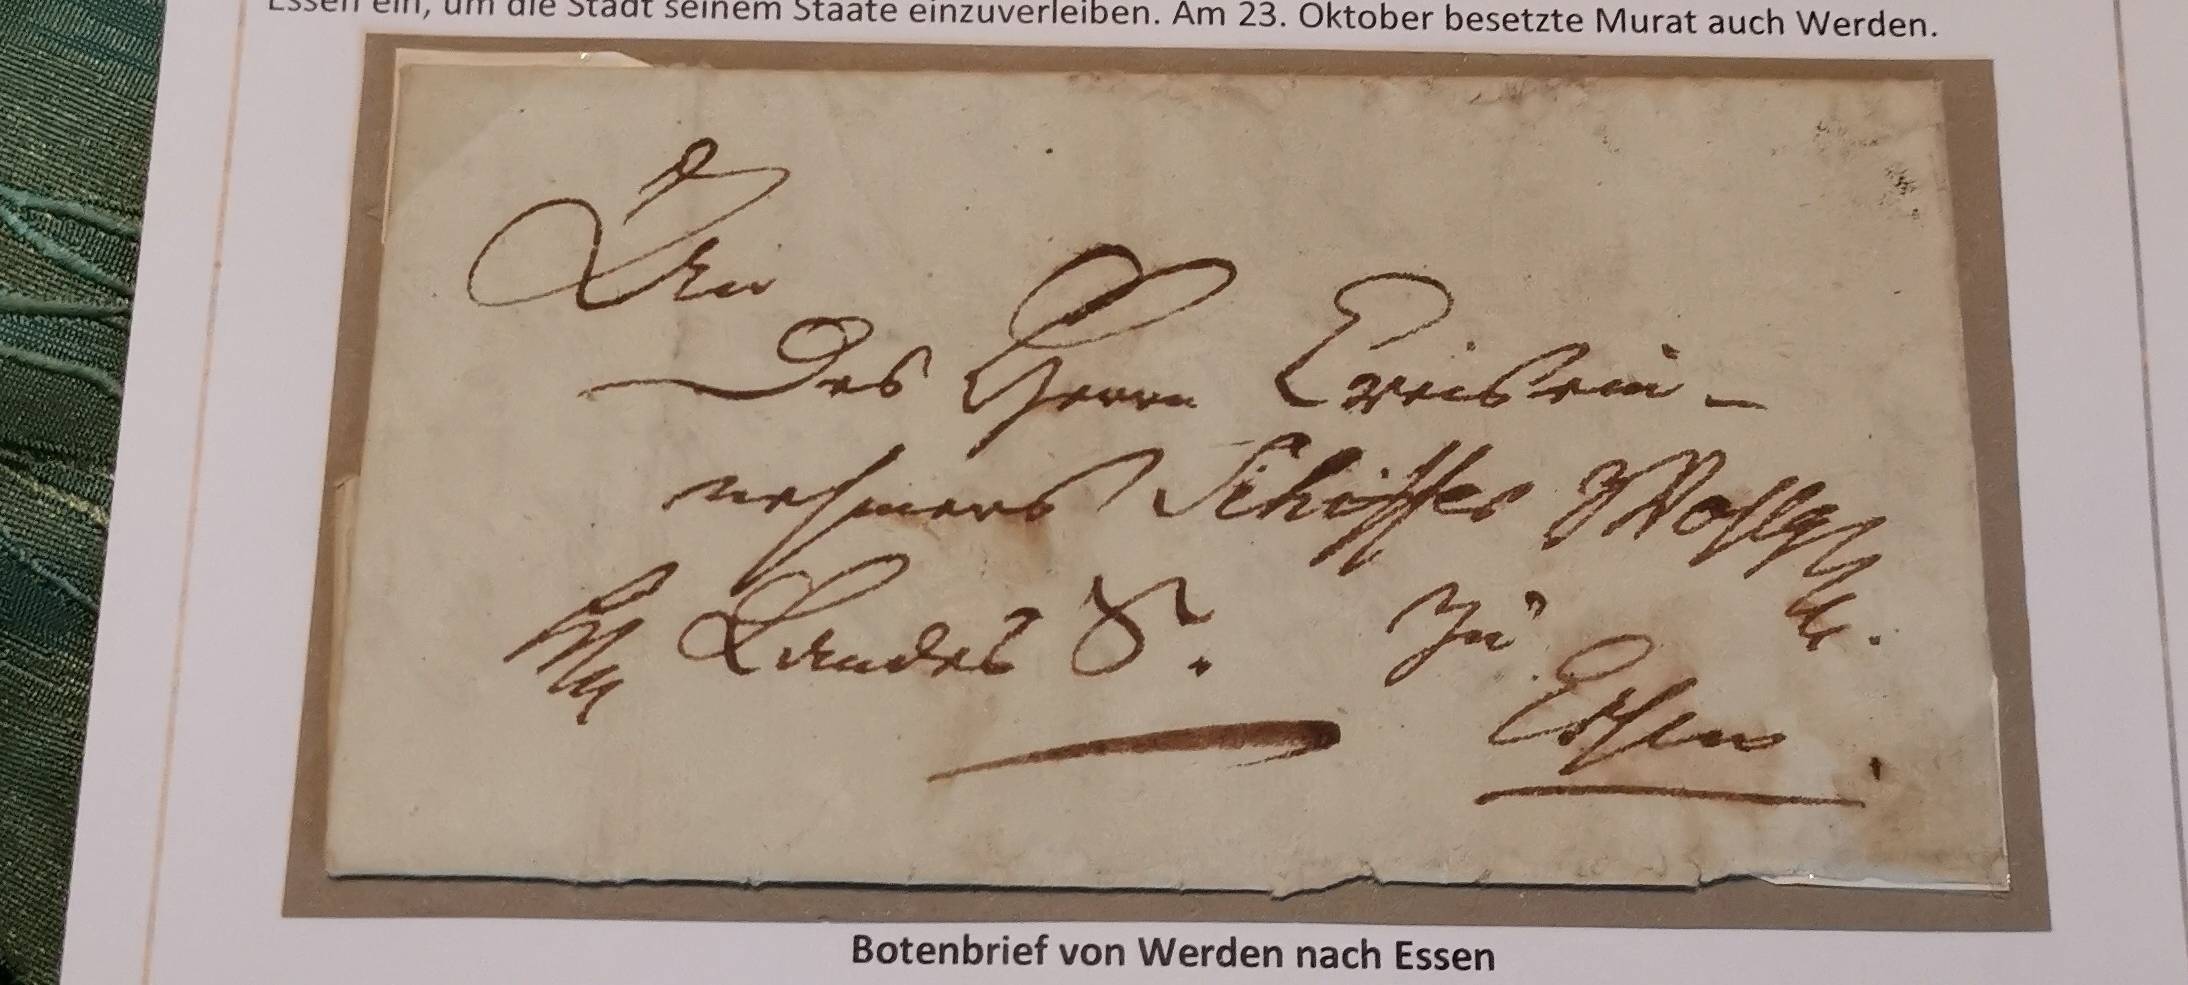 Essen ein, um die Stadt seinem Staate einzuverleiben. Am 23. Oktober besetzte Murat auch Werden.
An
Des Herrn Kreisein-
nehmers Schiffer
zu
Essen.
Botenbrief von Werden nach Essen